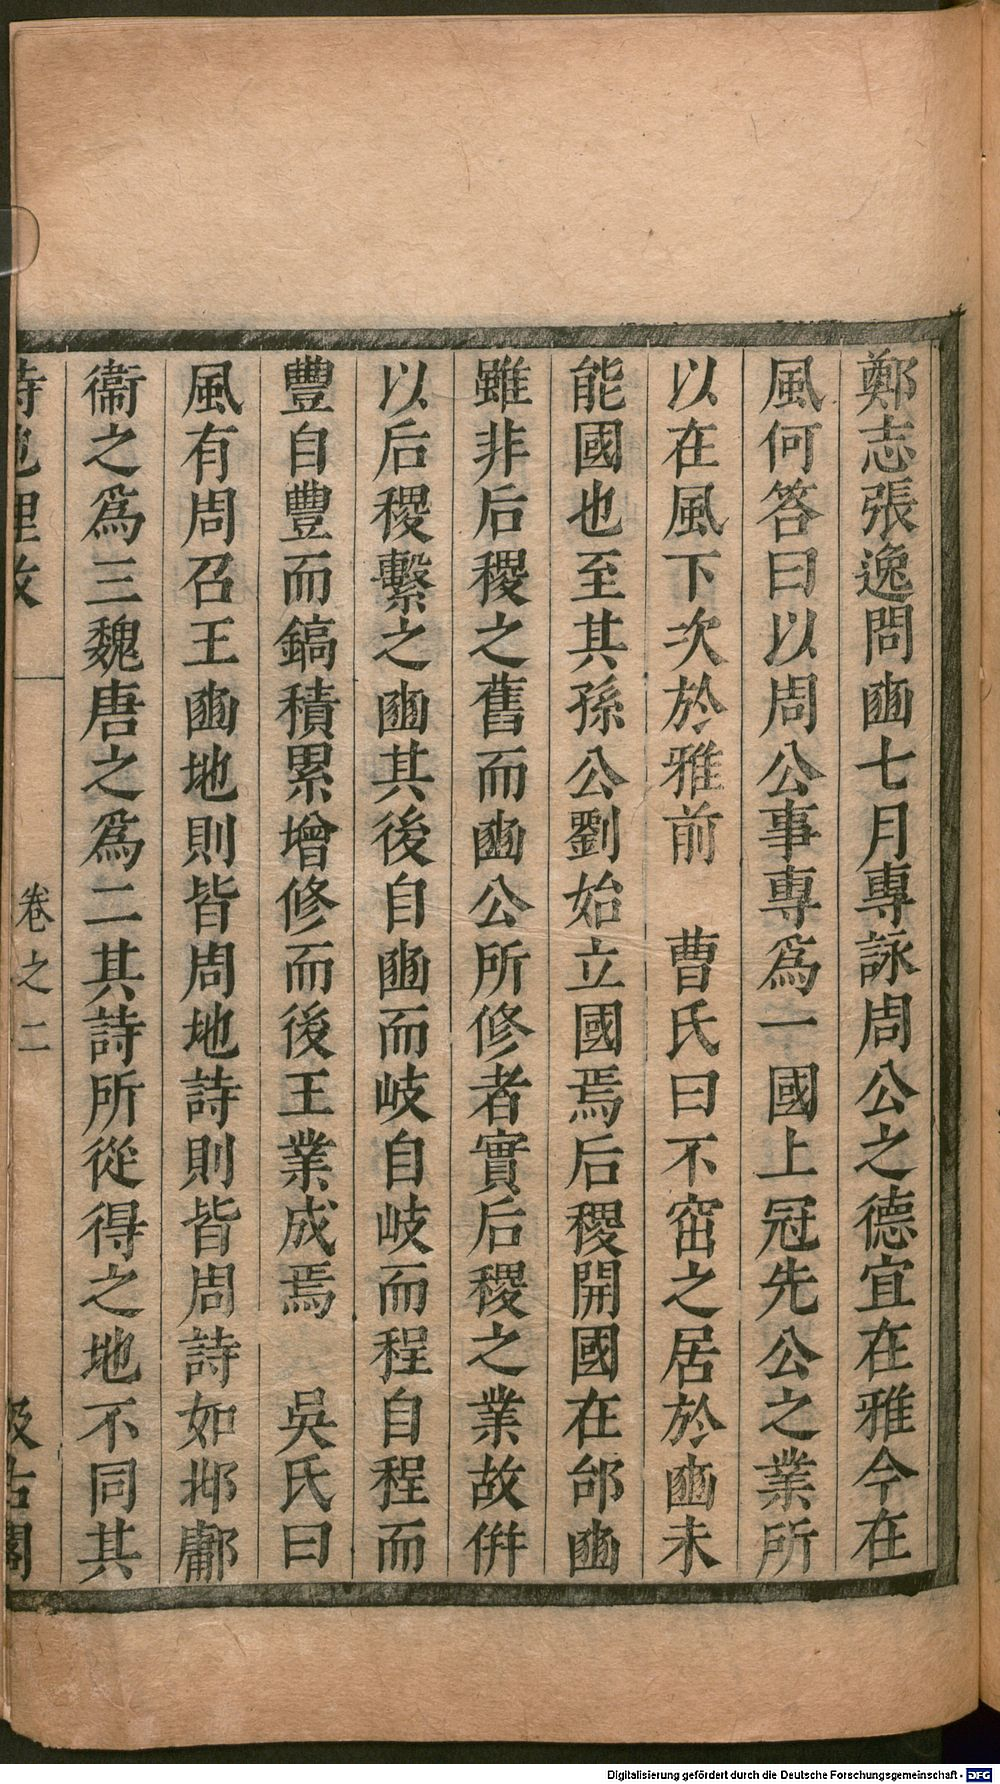 鄭志張逸問豳七月專詠周公之德宜在雅今在
風何答曰以周公事專爲一國上冠先公之業所
以在風下次於雅前　曹氏曰不窋之居於豳未
能國也至其孫公劉始立國焉后稷開國在邰豳
雖非后稷之舊而豳公所修者實后稷之業故併
以后稷繫之豳其後自豳而岐自岐而程自程而
豐自豐而鎬積累增修而後王業成焉　吳氏曰
風有周召王豳地則皆周地詩則皆周詩如邶鄘
衞之爲三魏唐之爲二其詩所從得之地不同其
詩地理攷　卷之二　汲古閣
Digitalisierung gefördert durch die Deutsche Forschungsgemeinschaft - DFG